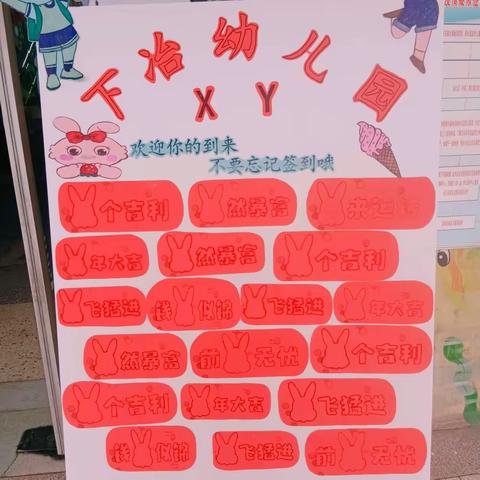 下冶幼儿园
XY
欢迎你的到来
不要忘记签到哦
个吉利 然暴富 来运转
年大吉 然暴富 个吉利
飞猛进 钱似锦 飞猛进 年大吉
然暴富 前无忧 个吉利
个吉利 年大吉 飞猛进
钱似锦 飞猛进 前无忧